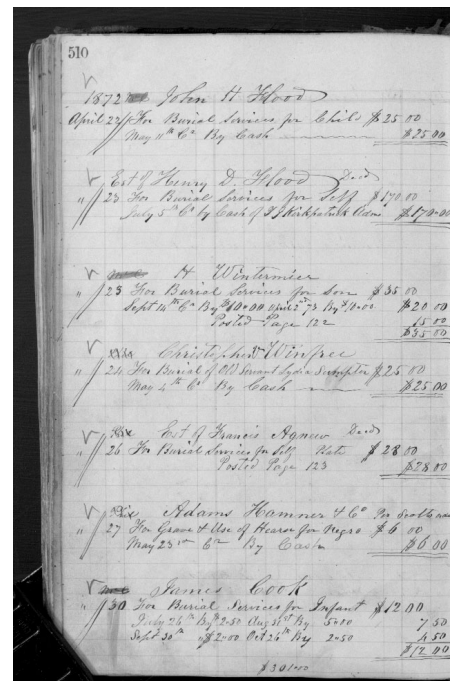 510
1872 John H Flood
April 22 For Burial Services for Child $25 00
May 11th Cr By Cash $25 00
Est of Henry D Flood Decd
" 23 For Burial Services for Self $170.00
July 5th Cr by Cash of Kirkpatrick Adm $170 00
H Wintermier
" 23 For Burial Services for Son $35 00
Sept 14th Cr By $10.00 April 2nd 73 By $10.00 $20 00
Posted Page 122 15 00
$35 00
Christopher Winfree
" 24 For Burial of Old Servant Lydia $25 00
May 4th Cr By Cash $25 00
Est of Francis Agnew Decd
" 26 For Burial Services for Self Note $28 00
Posted Page 123 $28 00
Adams Hamner & Co Per
" 27 For Grave & Use of Hearse for Negro $6 00
May 23rd Cr By Cash $6 00
James Cook
" 30 For Burial Services for Infant $12 00
July 26th By $2.50 Aug 31st By 5.00 7 50
Sept 30th " $2.00 Oct 26th By 2.50 4 50
$12 00